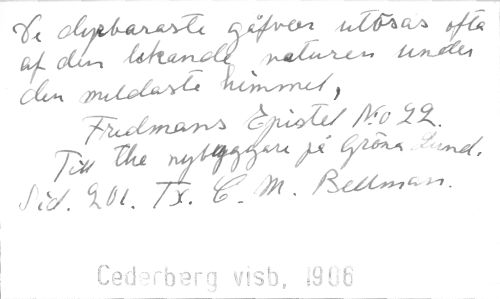 De dyrbaraste gåfvor utösas ofta
af den lekande naturen under
den mildaste himmel,
Fredmans Epistel No 22.
Till the nybyggare på Gröna Lund.
Sid. 201. Tx. C. M. Bellman.
Cederberg visb, 1906